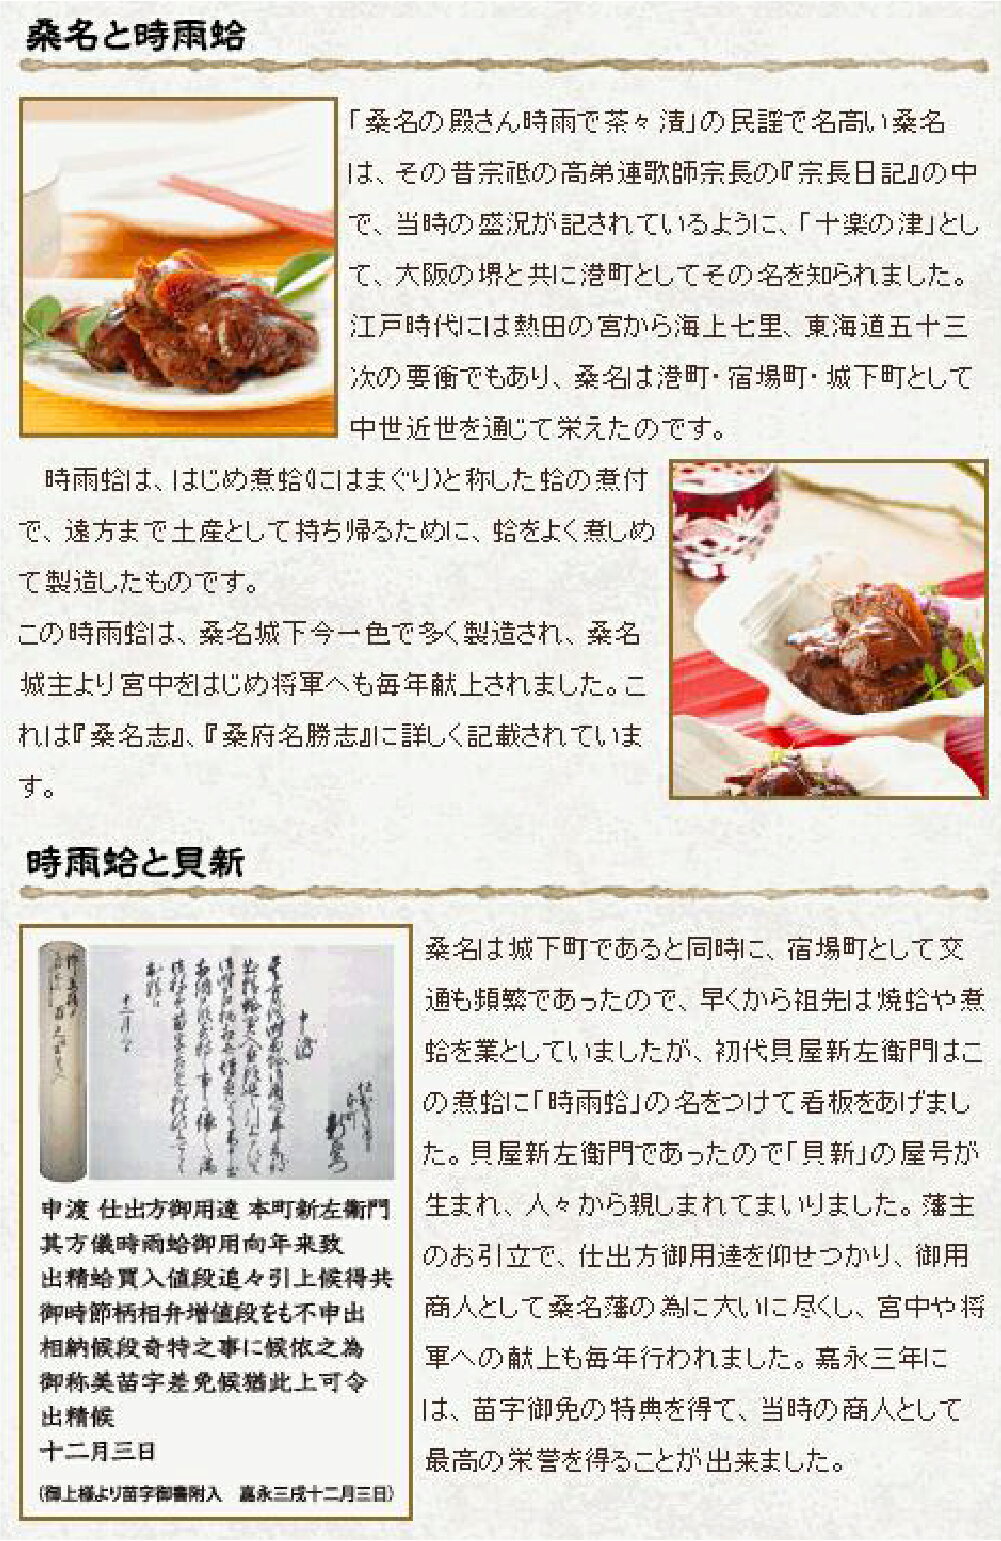 桑名と時雨蛤
「桑名の殿さん時雨で茶々漬」の民謡で名高い桑名
は、その昔宗祗の高弟連歌師宗長の『宗長日記』の中
で、当時の盛況が記されているように、「十楽の津」とし
て、大阪の堺と共に港町としてその名を知られました。
江戸時代には熱田の宮から海上七里、東海道五十三
次の要衝でもあり、桑名は港町・宿場町・城下町として
中世近世を通じて栄えたのです。
時雨蛤は、はじめ煮蛤(にはまぐり)と称した蛤の煮付
で、遠方まで土産として持ち帰るために、蛤をよく煮しめ
て製造したものです。
この時雨蛤は、桑名城下今一色で多く製造され、桑名
城主より宮中をはじめ将軍へも毎年献上されました。こ
れは『桑名志』、『桑府名勝志』に詳しく記載されていま
す。
時雨蛤と貝新
桑名は城下町であると同時に、宿場町として交
通も頻繁であったので、早くから祖先は焼蛤や煮
蛤を業としていましたが、初代貝屋新左衛門はこ
の煮蛤に「時雨蛤」の名をつけて看板をあげまし
た。貝屋新左衛門であったので「貝新」の屋号が
生まれ、人々から親しまれてまいりました。藩主
のお引立で、仕出方御用達を仰せつかり、御用
商人として桑名藩の為に大いに尽くし、宮中や将
軍への献上も毎年行われました。嘉永三年に
は、苗字御免の特典を得て、当時の商人として
最高の栄誉を得ることが出来ました。
申渡 仕出方御用達 本町新左衛門
其方儀時雨蛤御用向年来致
出精蛤買入値段追々引上候得共
御時節柄相弁増値段をも不申出
相納候段奇特之事に候依之為
御称美苗字差免候猶此上可令
出精候
十二月三日
(御上様より苗字御書附入 嘉永三戌十二月三日)